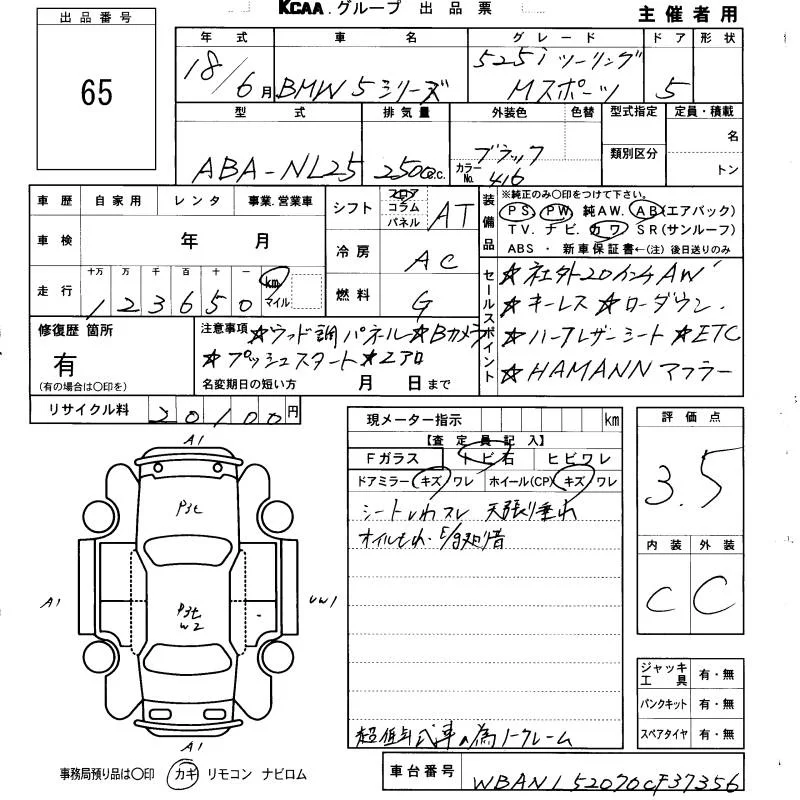 KCAA.グループ 出品票
主催者用
出品番号
65
年式 車名 グレード ドア 形状
18/6月 BMW 5シリーズ 525i ツーリング Mスポーツ 5
型式 排気量 外装色 色替 型式指定 定員・積載
ABA-NL25 2500c.c. ブラック カラーNo. 416 類別区分 名
トン
車歴 自家用 レンタ 事業.営業車
車検 年 月
走行 十万 万 千 百 十 一
123650 km マイル
シフト フロア コラム パネル AT
冷房 AC
燃料 G
装備品 ※純正のみ〇印をつけて下さい。
PS PW 純AW. AB(エアバック)
TV. ナビ. カワ SR(サンルーフ)
ABS ・ 新車保証書←(注) 後日送りのみ
セールスポイント
☆社外20インチAW
☆キーレス ☆ローダウン.
☆ハーフレザーシート ☆ETC
☆HAMANN マフラー
修復歴 箇所
有
(有の場合は〇印を)
注意事項 ☆ウッド調パネル ☆Bカメラ
☆プッシュスタート ☆エアロ
名変期日の短い方 月 日まで
リサイクル料 20100円
現メーター指示 km
【査定員記入】
Fガラス トビ石 ヒビワレ
ドアミラー キズ ワレ ホイール(CP) キズ ワレ
シートしわスレ 天張り垂れ
オイルもれ・E/g異音
超低年式車の為ノークレーム
評価点
3.5
内装 外装
C C
ジャッキ工具 有・無
パンクキット 有・無
スペアタイヤ 有・無
A1
P3t
A1
P3t
W2
UW1
A1
事務局預り品は〇印 カギ リモコン ナビロム
車台番号 WBANL52070CF37356